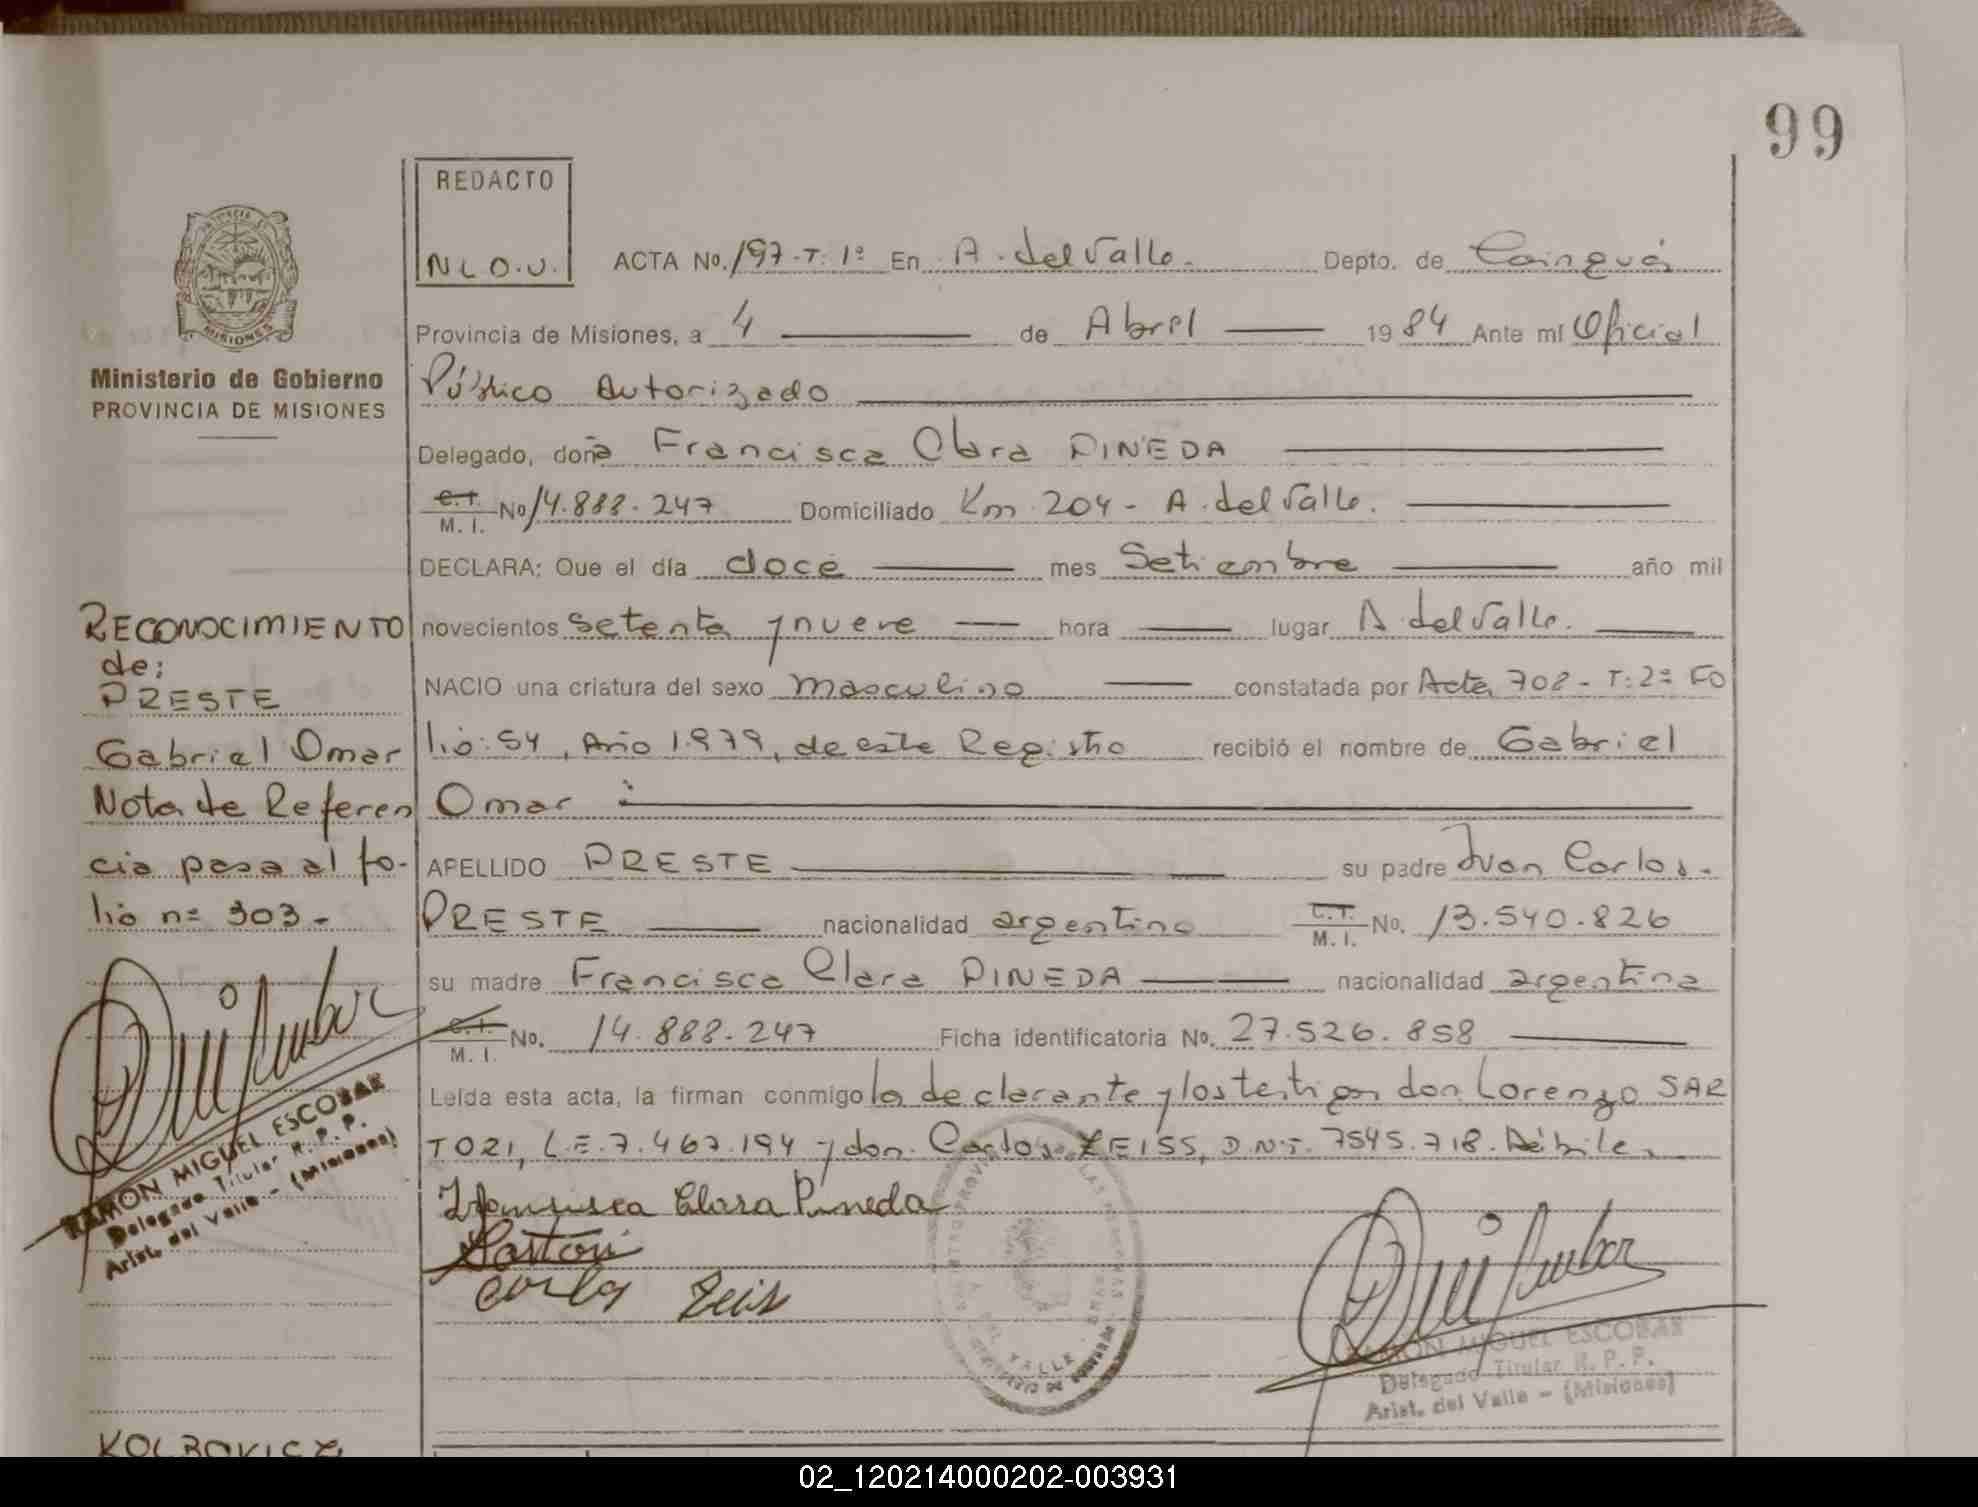 99
REDACTO
N L O. U.
ACTA No. 197-T: 1º En A. del Valle. Depto. de Cainguás
Provincia de Misiones, a 4 de Abril 1984 Ante mí Oficial
Ministerio de Gobierno
PROVINCIA DE MISIONES
Público Autorizado
Delegado, doña Francisca Clara PINEDA
C.I. M. I. No 14.888.247 Domiciliado Km 204 - A. del Valle.
DECLARA: Que el día doce mes Setiembre año mil
novecientos setenta y nueve hora lugar A. del Valle.
NACIO una criatura del sexo masculino constatada por Acta 708 - T: 2º FO
lio: 54, Año 1.979, de este Registro recibió el nombre de Gabriel
Omar
APELLIDO PRESTE su padre Juan Carlos
PRESTE nacionalidad argentino C.I. M. I. No. 13.540.826
su madre Francisca Clara PINEDA nacionalidad argentina
C.I. M. I. No. 14.888.247 Ficha identificatoria No. 27.526.858
Leída esta acta, la firman conmigo la declarante y los testigos don Lorenzo SAR
TORI, L.E. 7.467.194 y don Carlos ZEISS, D.N.I. 7545.718. Hábiles
Francisca Clara Pineda
Sartori
Carlos Zeis
RAMON MIGUEL ESCOBAR
Delegado Titular R. P. P.
Arist. del Valle - (Misiones)
RECONOCIMIENTO
de:
PRESTE
Gabriel Omar
Nota de Referen
cia pasa al fo-
lio nº 303-
RAMON MIGUEL ESCOBAR
Delegado Titular R. P. P.
Arist. del Valle - (Misiones)
02_120214000202-003931